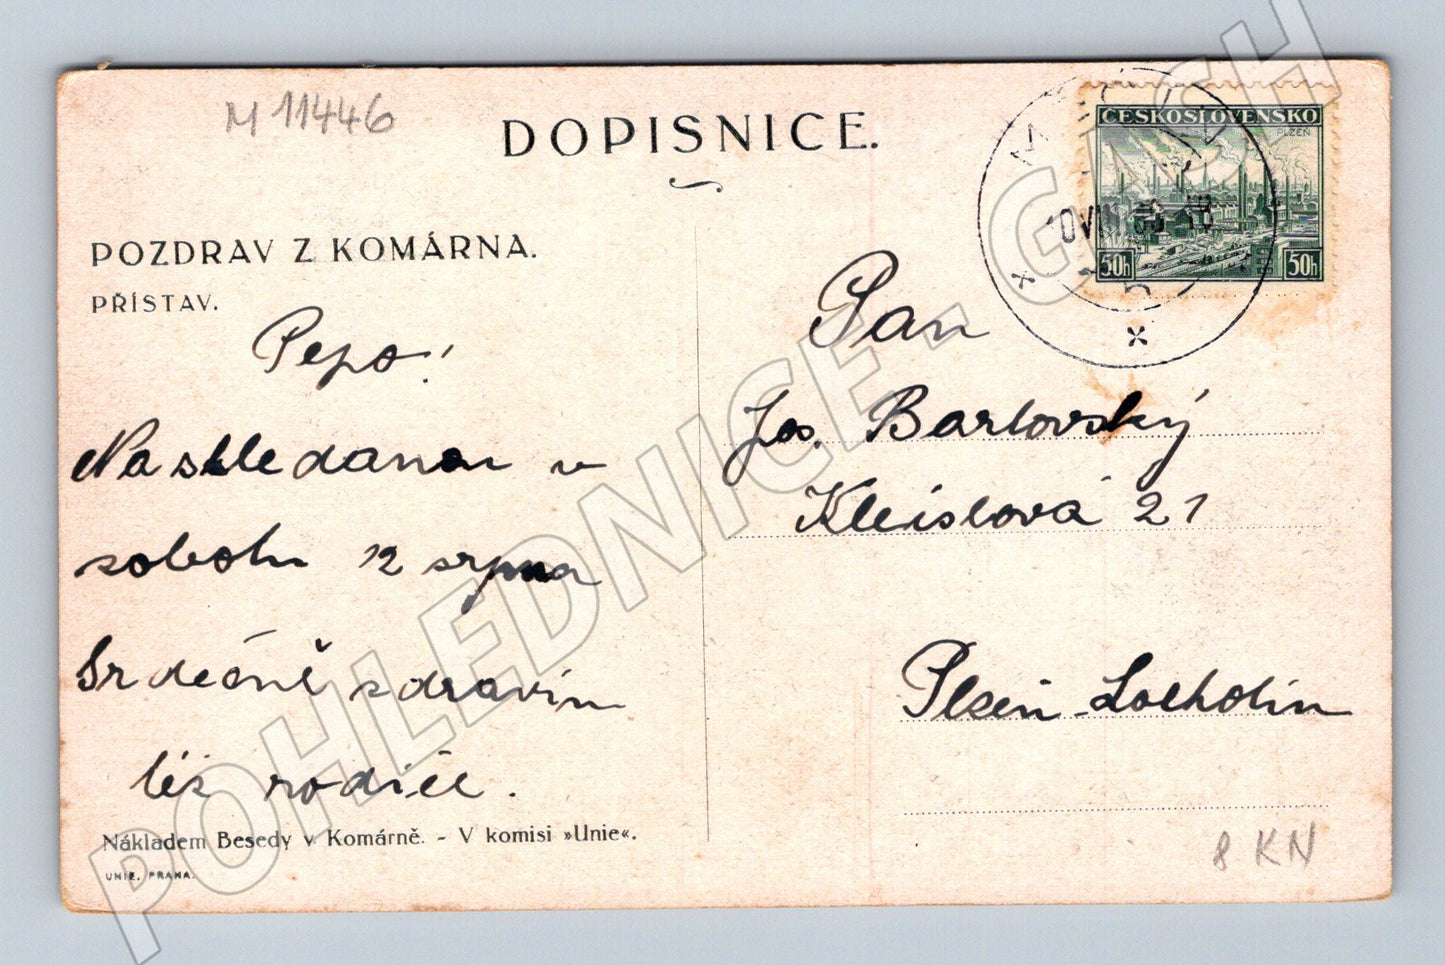 M 11446
DOPISNICE.
ČESKOSLOVENSKO
PLZEŇ
50h
50h
10 VIII
POZDRAV Z KOMÁRNA.
PŘÍSTAV.
Pepo!
Na shledanou v
sobotu 12 srpna
Srdečně zdravím
též rodiče.
Pan
Jos. Bartovský
Kleislová 21
Plzeň - Lochotín
Nákladem Besedy v Komárně. - V komisi »Unie«.
UNIE, PRAHA.
8 KN
POHLEDNICE - GASH